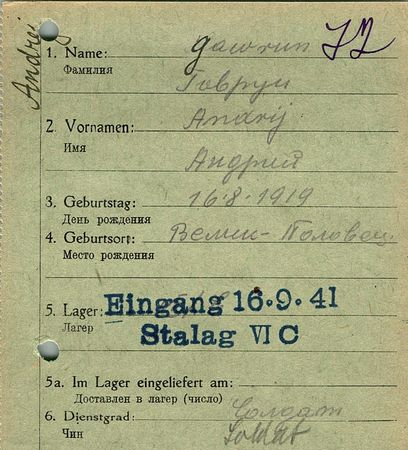 Andrej
1. Name: Gawrun
Фамилия Говрун
2. Vornamen: Andrij
Имя Андрий
3. Geburtstag: 16.8.1919
День рождения
4. Geburtsort: Велик-Половец
Место рождения
5. Lager: Eingang 16.9.41
Лагер Stalag VI C
5a. Im Lager eingeliefert am:
Доставлен в лагер (число)
6. Dienstgrad: Солдат
Чин Soldat